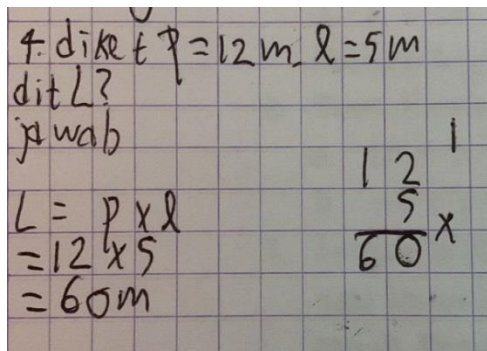 4. diket p = 12 m l = 5 m
dit L?
jawab
L = p x l
= 12 x 5
= 60 m
1
12
5 x
60